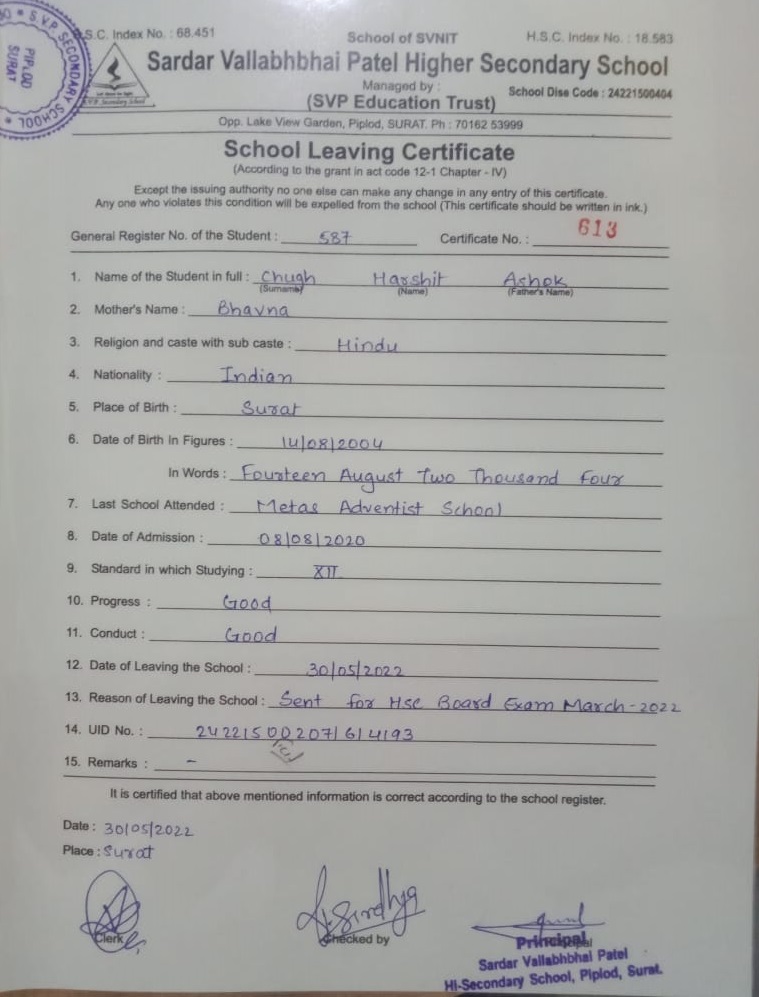 S.C. Index No. : 68.451
School of SVNIT
H.S.C. Index No. : 18.583
Sardar Vallabhbhai Patel Higher Secondary School
Managed by :
(SVP Education Trust)
School Dise Code : 24221500404
Opp. Lake View Garden, Piplod, SURAT. Ph : 70162 53999
S.V.P. SECONDARY SCHOOL
PIPLOD
SURAT
School Leaving Certificate
(According to the grant in act code 12-1 Chapter - IV)
Except the issuing authority no one else can make any change in any entry of this certificate.
Any one who violates this condition will be expelled from the school (This certificate should be written in ink.)
General Register No. of the Student : 587 Certificate No. : 613
1. Name of the Student in full : Chugh Harshit Ashok
(Surname) (Name) (Father's Name)
2. Mother's Name : Bhavna
3. Religion and caste with sub caste : Hindu
4. Nationality : Indian
5. Place of Birth : Surat
6. Date of Birth In Figures : 14/08/2004
In Words : Fourteen August Two Thousand Four
7. Last School Attended : Metas Adventist School
8. Date of Admission : 08/08/2020
9. Standard in which Studying : XII
10. Progress : Good
11. Conduct : Good
12. Date of Leaving the School : 30/05/2022
13. Reason of Leaving the School : Sent for Hsc Board Exam March-2022
14. UID No. : 242215002071614193
15. Remarks : -
It is certified that above mentioned information is correct according to the school register.
Date : 30/05/2022
Place : Surat
Clerk
Checked by
Principal
Sardar Vallabhbhai Patel
Hi-Secondary School, Piplod, Surat.